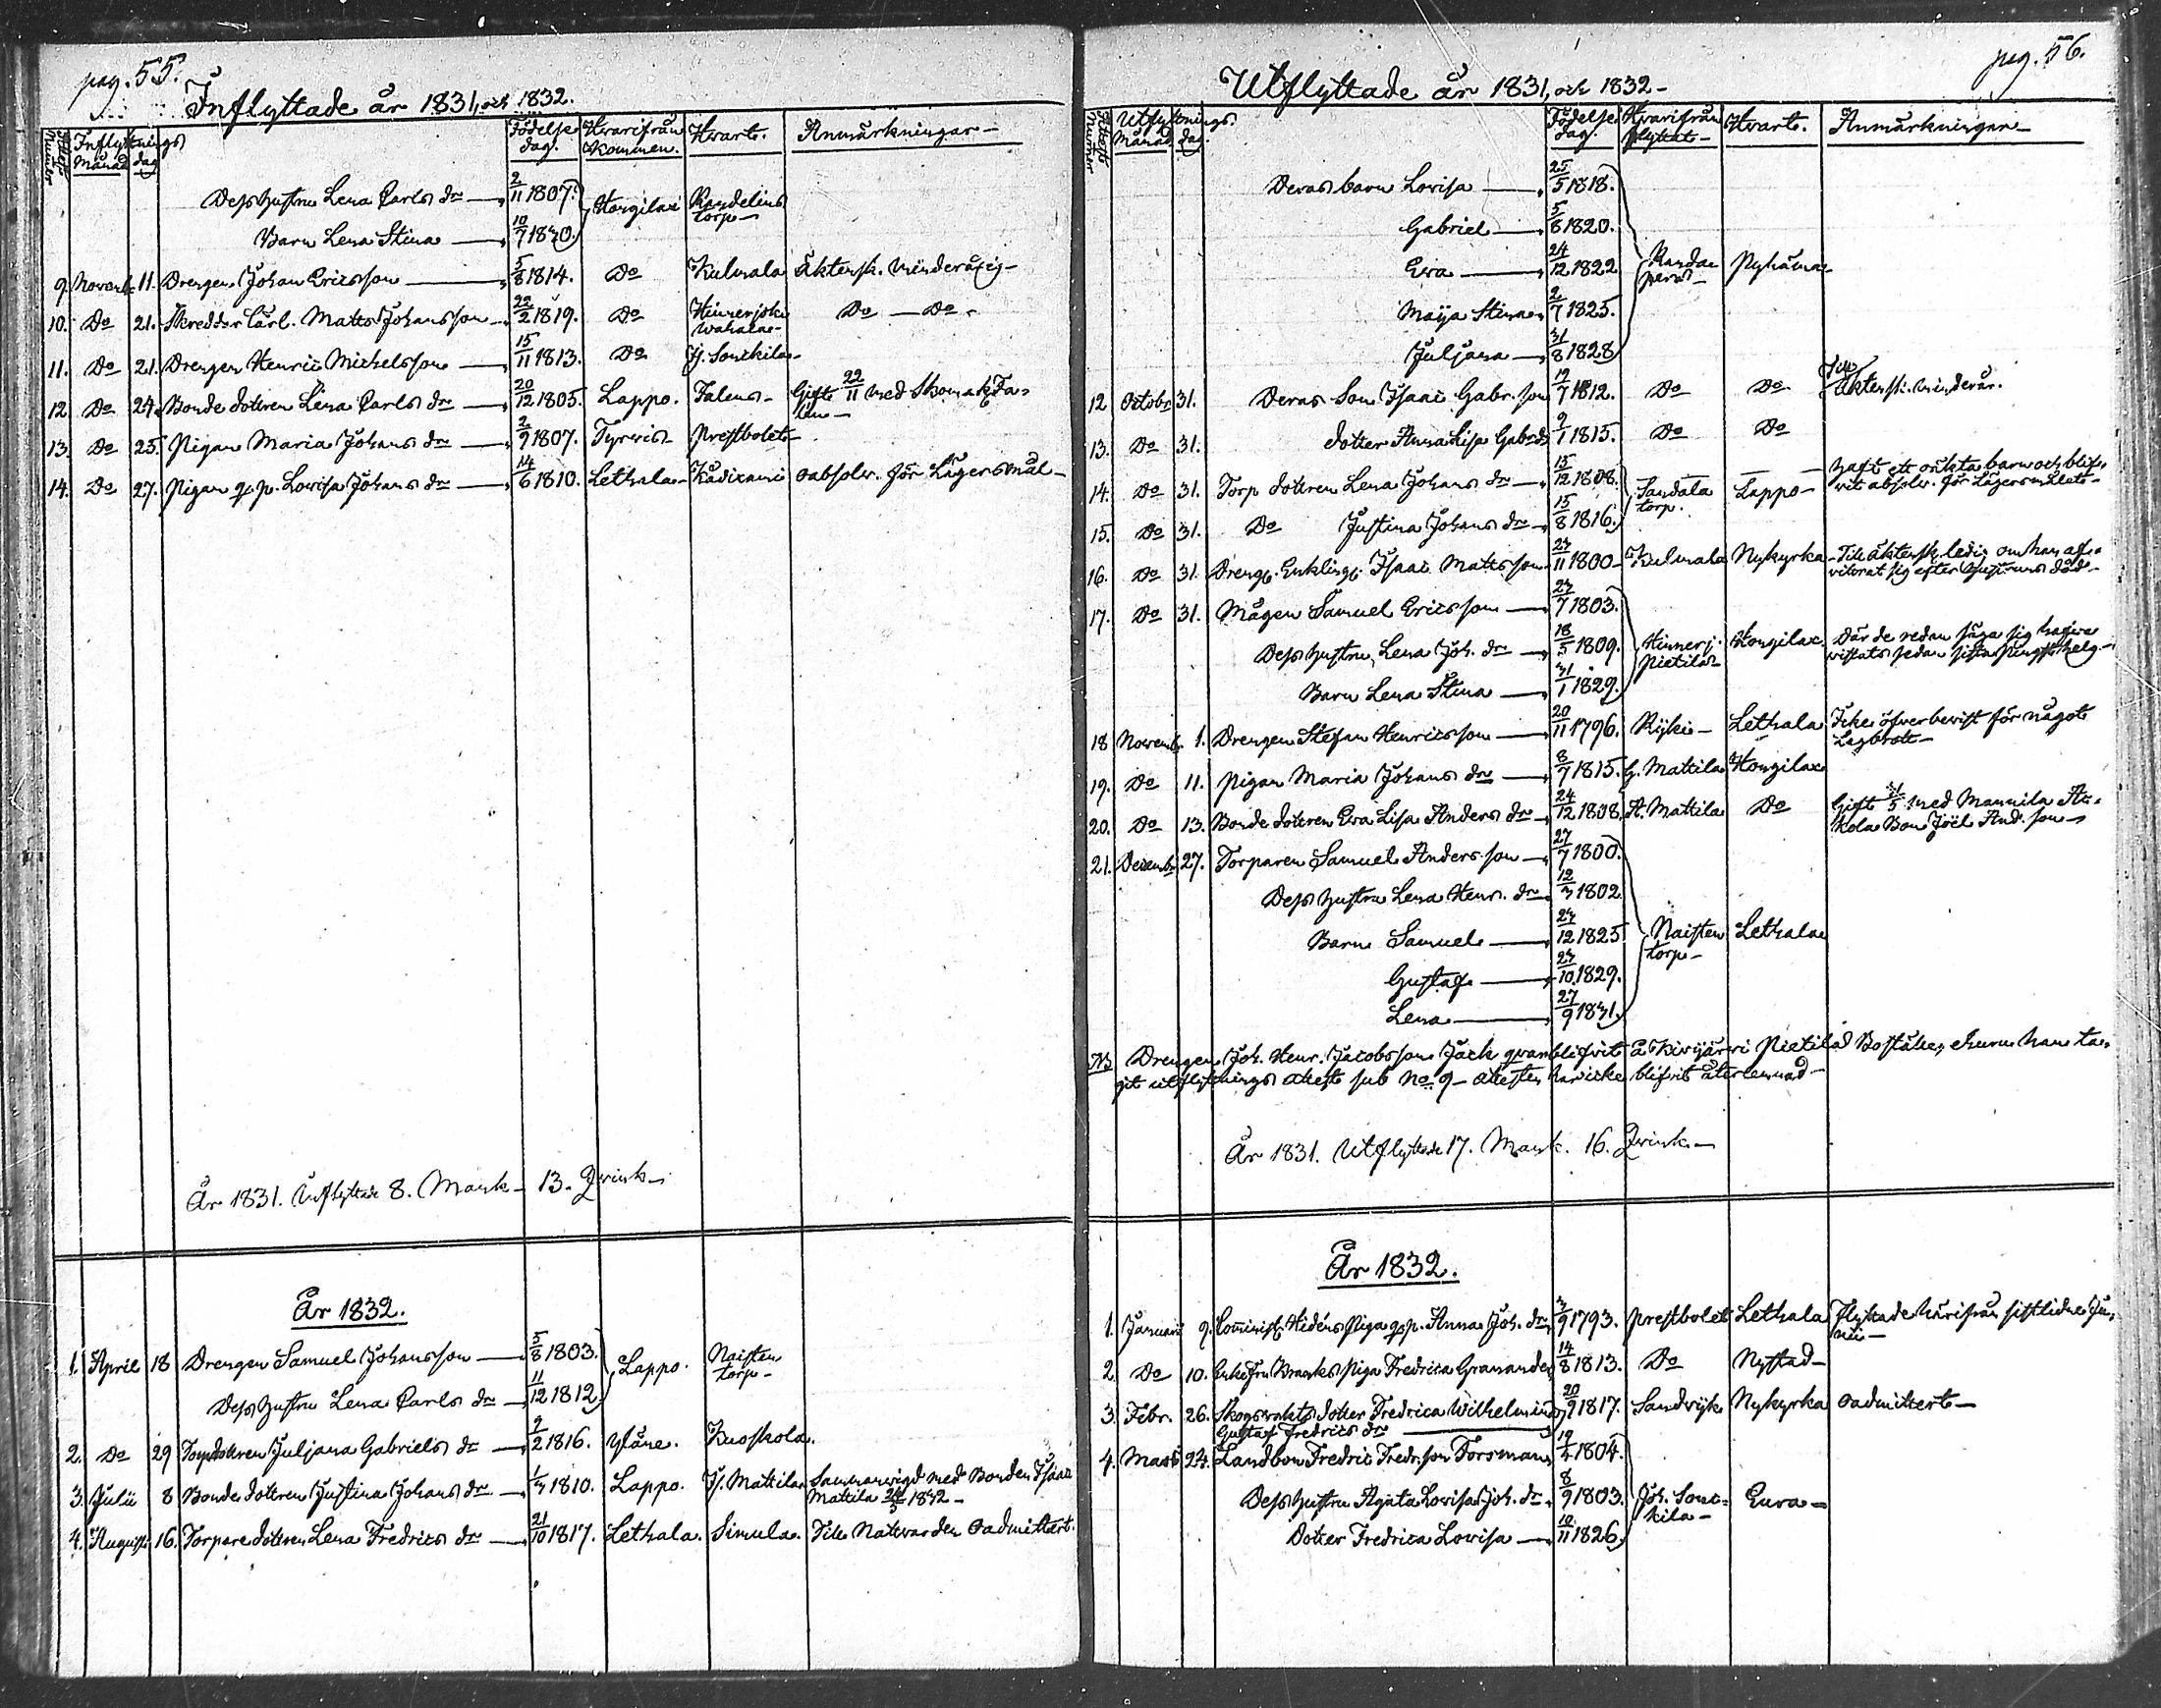 pag. 55.
Inflyttade år 1831, och 1832.
Attests Numer
Inflyttnings
Månad dag
Födelse dag.
Hvarifrån kommen.
Hvart.
Anmärkningar
Dess hustru Lena Carls dr 2/11 1807. Hongilax Randelins
torp
Barn Lena Stina 10/7 1830.
9. Novemb. 11. Drengen Johan Ericsson 5/8 1814. Do Kulmala äktensk. minderårig
10. Do 21. Skreddar lärl. Matts Johansson 22/2 1819. Do Hinnerjoki Do Do
11. Do 21. Drengen Henric Michelsson 15/11 1813. Do J. Sonckila
12. Do 24. Bonde dottren Lena Carls dr 20/12 1805. Lappo. Falens Gift 22/11 med Skomak. Fa-
len
13. Do 25. Pigan Maria Johans dr 2/9 1807. Tyrvis Prestbolet
14. Do 27. Pigan qsp. Lovisa Johans dr 14/6 1810. Lethala oabsolv. för Lägersmål
År 1831. Inflyttade 8. Mank. 13. Qvink.
År 1832.
1. April 18 Drengen Samuel Johansson 5/8 1803. Lappo. Naisten
torp
Dess hustru Lena Carls dr 11/12 1812.
2. Do 29 Torpdottren Juljana Gabriels dr 9/2 1816. Yläne. Kuoskola.
3. Julii 8 Bonde dottren Justina Johans dr 1/3 1810. Lappo. J. Mattila Sammanvigd med Bonden Isaac
Mattila 1832
4. Augusti 16. Torpare dottren Lena Fredrics dr 21/10 1817. Lethala. Simula. Till Nattvarden oadmittert.
pag. 56.
Utflyttade år 1831, och 1832
Attests Numer
Utflyttnings
Månad dag.
Födelse dag.
Hvarifrån flyttat
Hvart.
Anmärkningar
Deras barn Lovisa 25/5 1818.
Gabriel 5/8 1820.
Eva 24/12 1822 Pyhäma
Maija Stina 2/7 1825.
Juljana 31/8 1828
12 Octobr. 31. Deras Son Isaac Gabr. son 19/7 1812. Do Do Till äktensk. minderår.
13. Do 31. dotter Anna Lisa Gabr. dr 9/1 1815. Do Do
14. Do 31. Torp dottren Lena Johans dr 15/12 1808. Sandala
torp. Lappo haft ett oäkta barn och blif-
vit absolv. för Lägersmålet
15. Do 31. Do Justina Johans dr 15/8 1816.
16. Do 31. Dreng. Enkling. Isaac Mattsson 23/11 1800 Kulmala Nykyrka Till äktensk. ledig om han af-
vitrat sig efter hustruns död
17. Do 31. Mågen Samuel Ericsson 27/7 1803.
Dess hustru Lena Joh. dr 18/5 1809. Hinnerj.
Pietilä Hongilax. Där de redan säga sig hafva
vistats sedan sista pingsthelg.
Barn Lena Stina 31/1 1829.
18 Novemb. 1. Drengen Stefan Henricsson 20/11 1796. Rijkis Lethala Icke öfverbevist för något
Lagbrott
19. Do 11. Pigan Maria Johans dr 8/7 1815. G. Mattila Hongilax
20. Do 13. Bonde dottren Eva Lisa Anders dr 24/12 1808. A. Mattila Do Gift med Mannila
kola Bon. Joël And. son
21. Decemb. 27. Torparen Samuel Anders. son 27/7 1800.
Dess hustru Lena Henr. dr 12/3 1802
Barn Samuel 23/12 1825 Naisten
torp Lethala
Gustaf 23/10 1829.
Lena 27/9 1831.
NB Drengen Joh. Henr. Jacobsson Jack qvarblifvit å Kivijärvi Pietilä Boställe, ehuru han ta-
git utflyttnings attest sub No 9 attesten har icke blifvit återlemnad
År 1831. Utflyttade 17. Mank. 16. Qvink.
År 1832.
1. Januarii 9. Comminist. Hidéns piga qsp. Anna Joh. dr 3/9 1793. Prestbolet Lethala Flyttade härifrån sistledne Ju-
nii
2. Do 10. Enkefru piga Fredrica Granander 14/8 1813. Do Nystad
3. Febr. 26. Skogvakts dotter Fredrica Wilhelmina
Gustaf Fredrics dr 20/9 1817. Sandvijk Nykyrka oadmittert
4. Mars 24. Landbon Fredric Fredr. son Forsman 19/4 1804.
Dess hustru Agata Lovisa Joh. dr 8/9 1803. Joh. Sonc-
kila Eura
Dotter Fredrica Lovisa 10/11 1826.